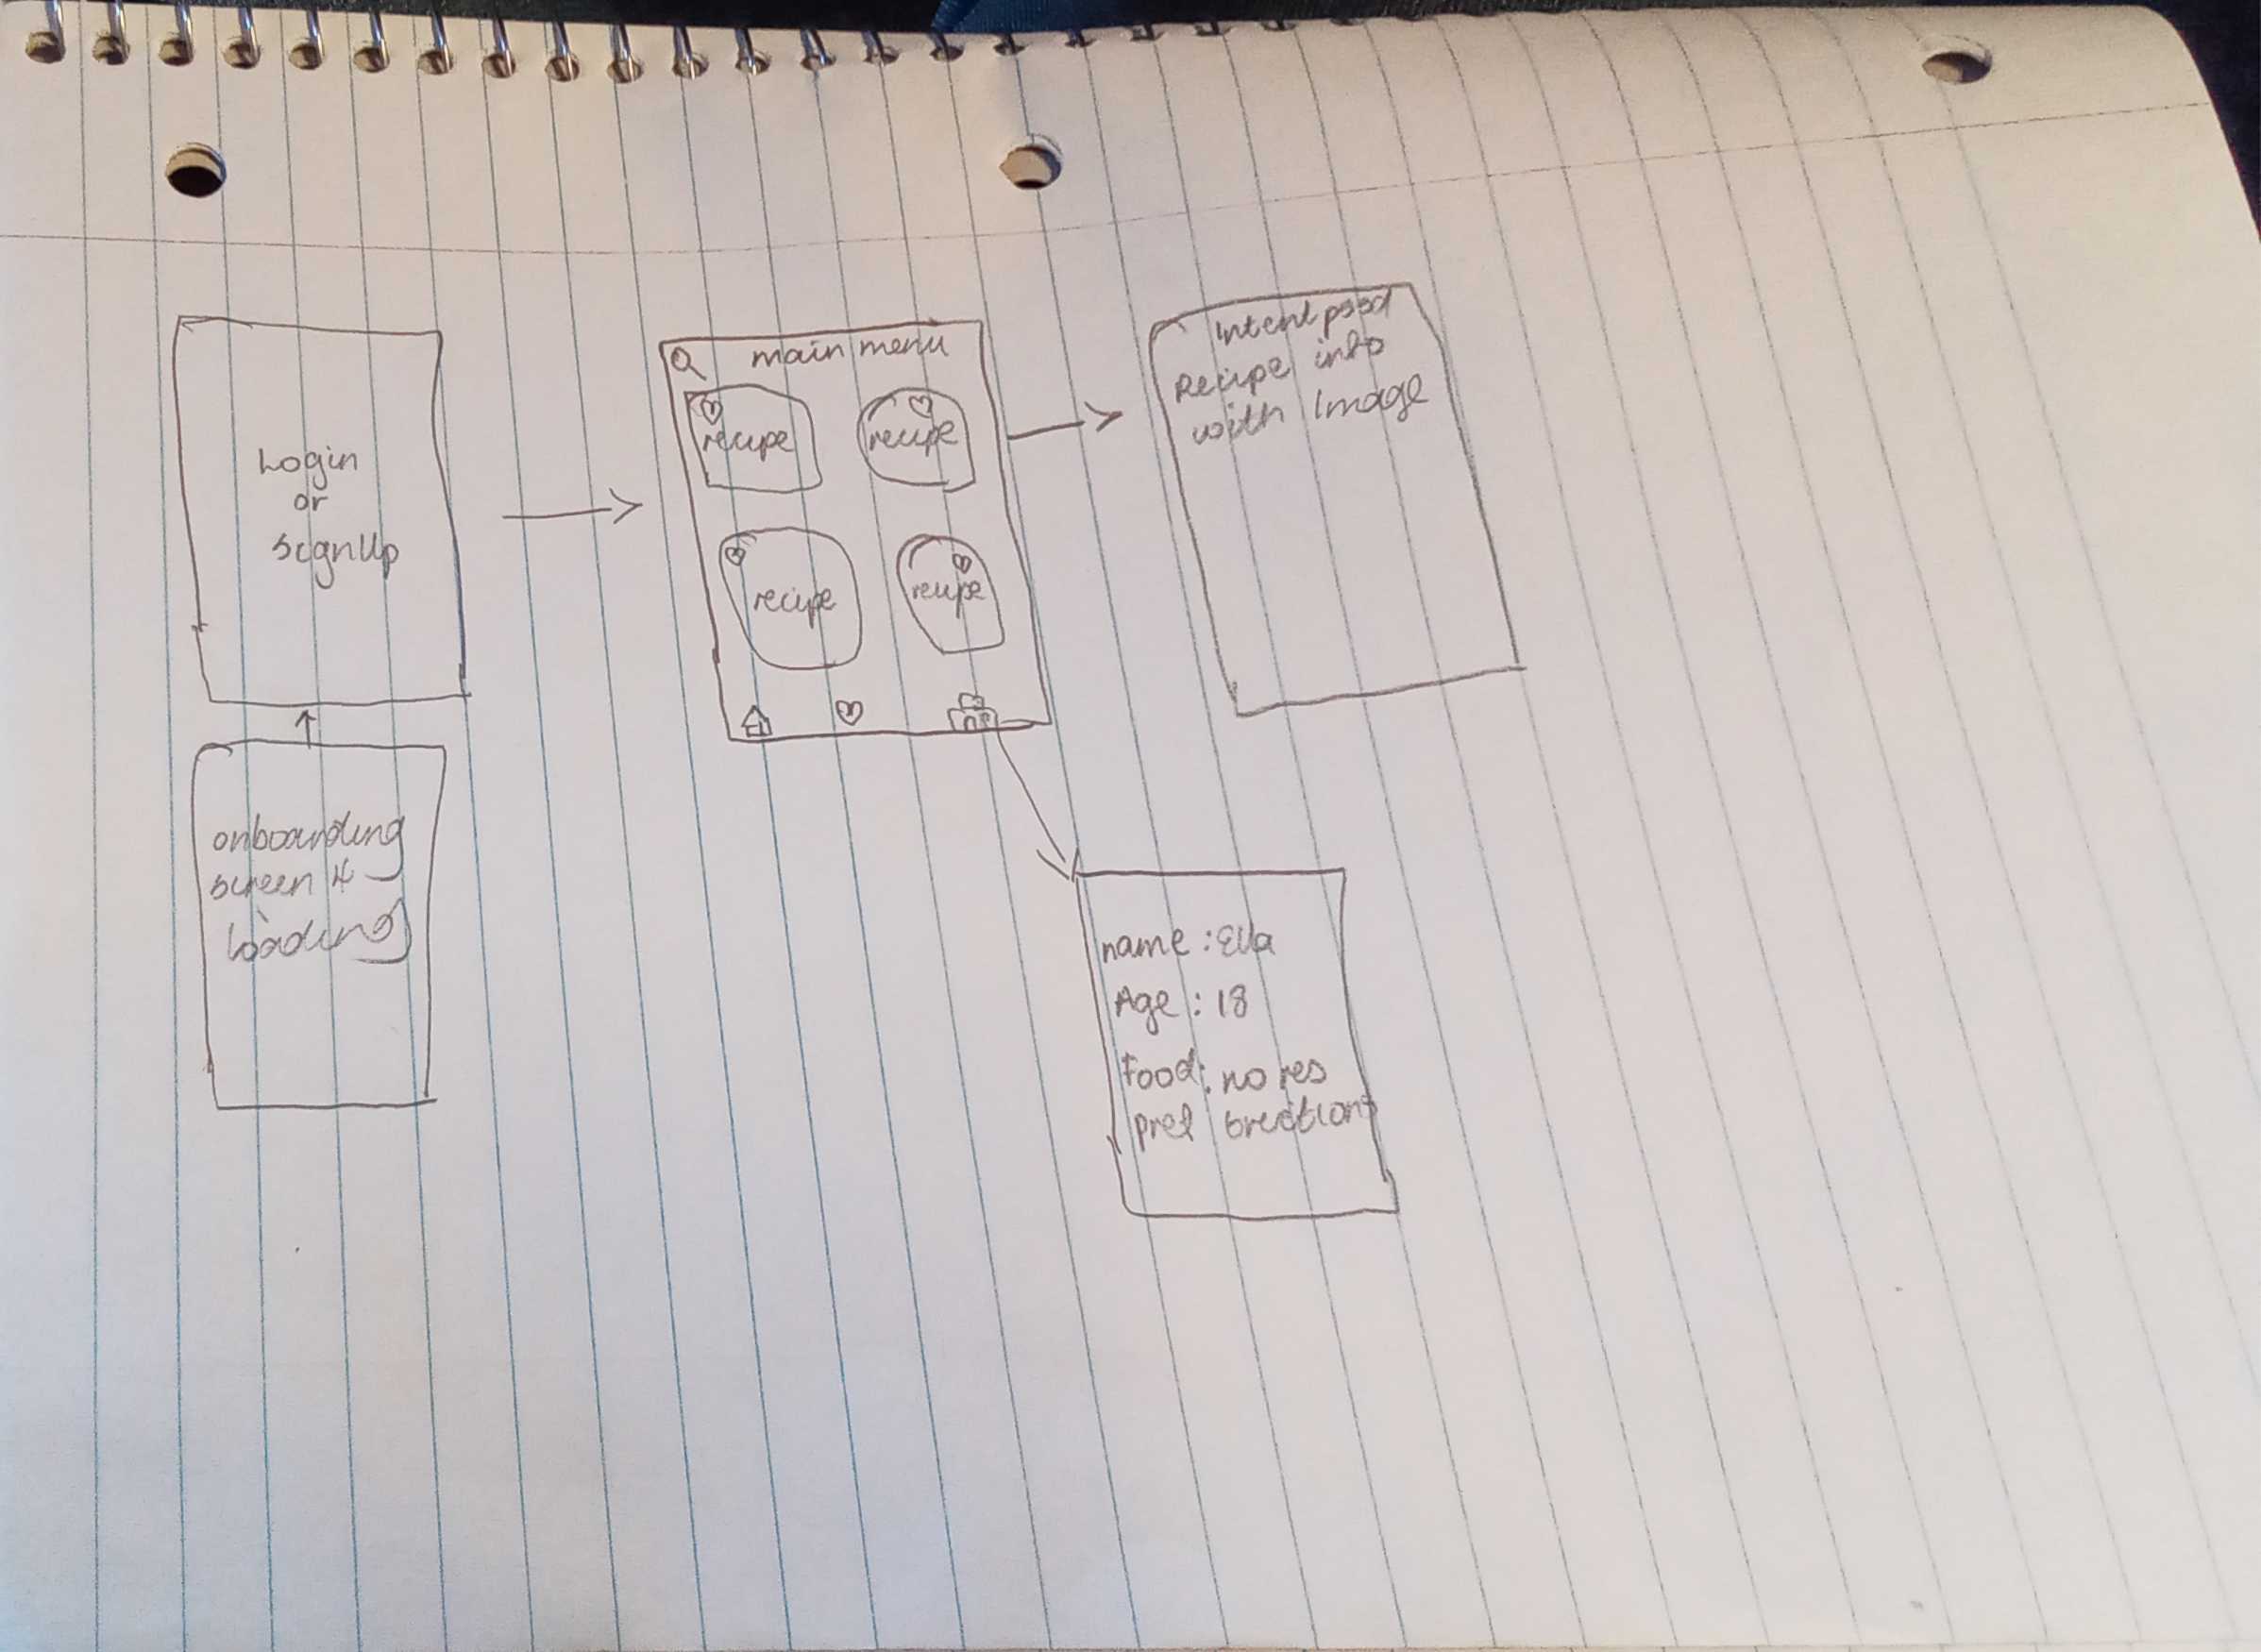 Login
or
SignUp
onboarding
screen &
loading
main menu
recipe
recipe
recipe
recipe
Intent pssd
Recipe info
with Image
name : Ella
Age : 18
Food: no res
pref trictions